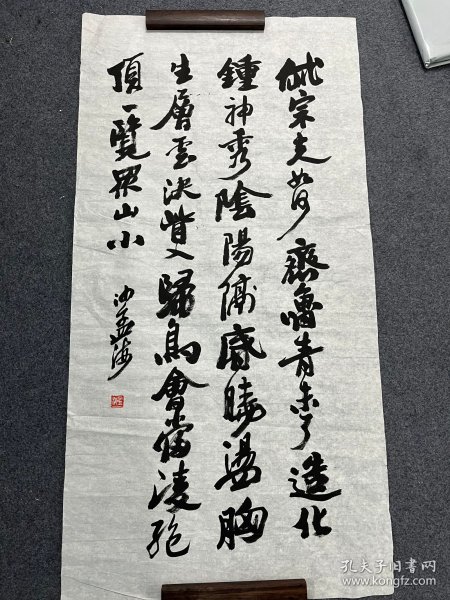 岱宗夫如何齊魯青未了造化
鍾神秀陰陽割昏曉盪胸
生層雲決眥入歸鳥會當凌絕
頂一覽眾山小
沙孟海
孔夫子旧书网
www.kongfz.com